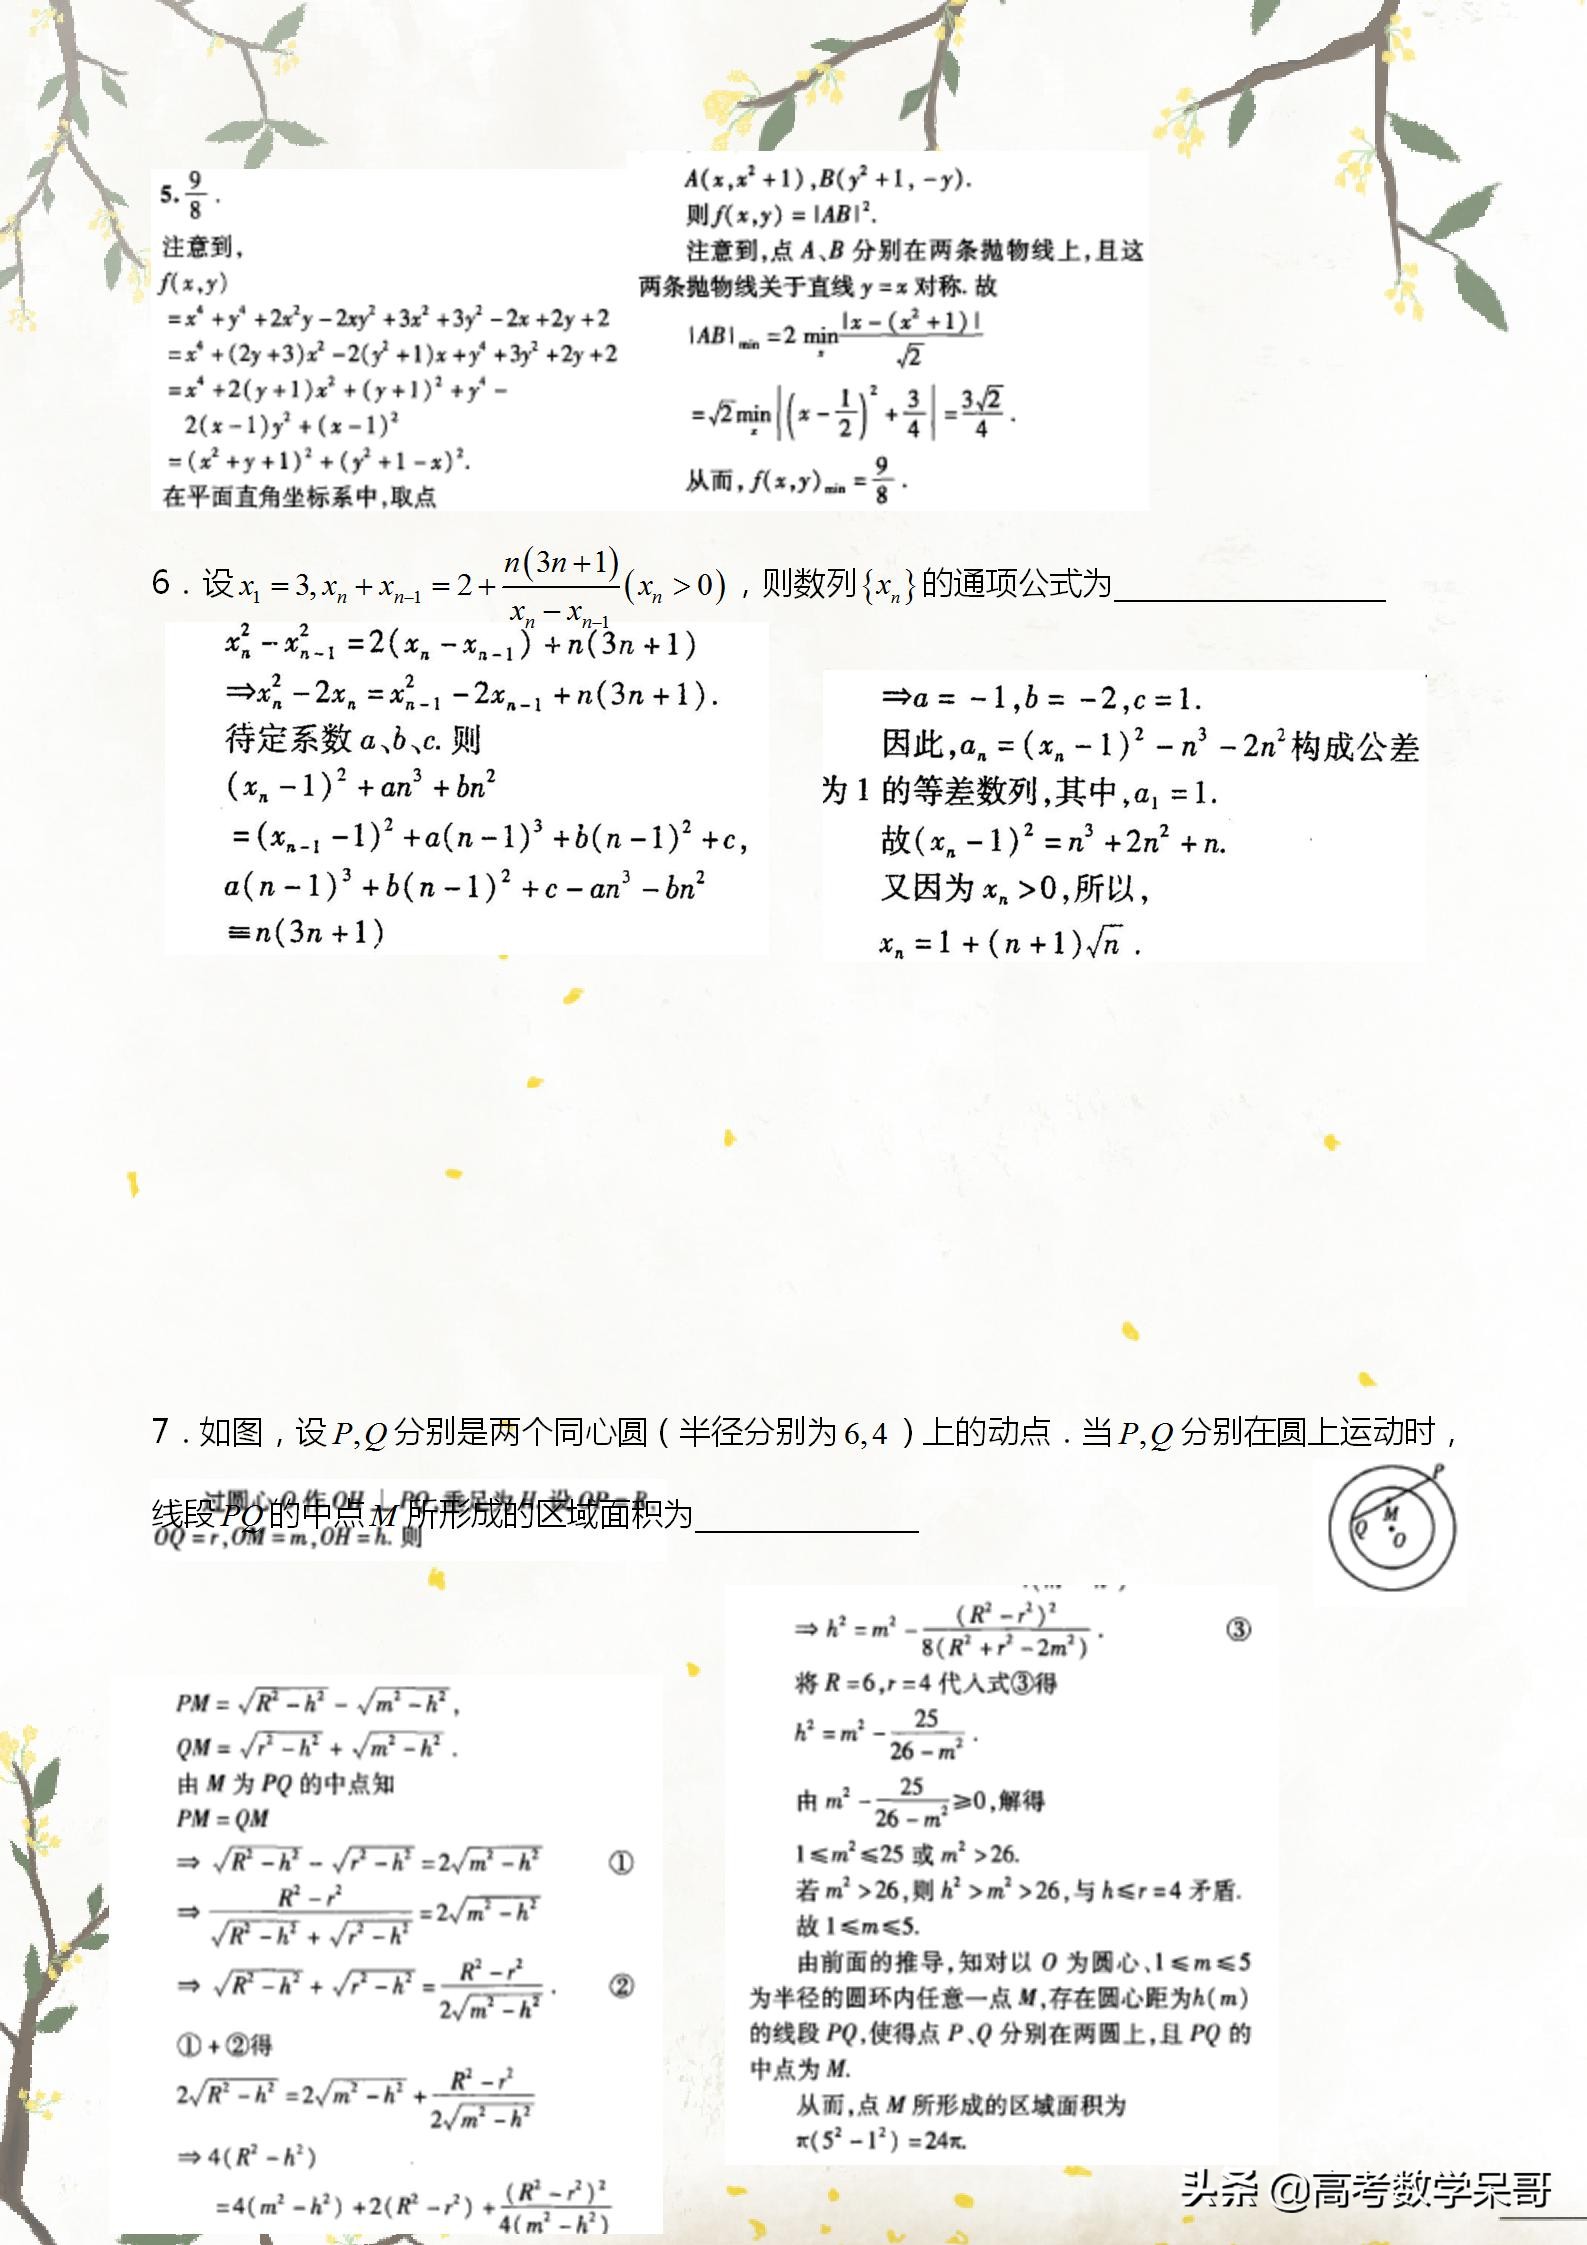 5. 9/8 .
注意到,
f(x,y)
=x⁴+y⁴+2x²y-2xy²+3x²+3y²-2x+2y+2
=x⁴+(2y+3)x²-2(y²+1)x+y⁴+3y²+2y+2
=x⁴+2(y+1)x²+(y+1)²+y⁴-
2(x-1)y²+(x-1)²
=(x²+y+1)²+(y²+1-x)².
在平面直角坐标系中,取点
A(x,x²+1),B(y²+1,-y).
则f(x,y)=|AB|².
注意到,点A、B分别在两条抛物线上,且这
两条抛物线关于直线y=x对称.故
|AB|min=2 min_x |x-(x²+1)|/√2
=√2 min_x |(x-1/2)²+3/4|=3√2/4.
从而,f(x,y)min=9/8.
6．设x₁=3,xₙ+xₙ₋₁=2+n(3n+1)/(xₙ-xₙ₋₁)(xₙ>0)，则数列{xₙ}的通项公式为
xₙ²-xₙ₋₁²=2(xₙ-xₙ₋₁)+n(3n+1)
⇒xₙ²-2xₙ=xₙ₋₁²-2xₙ₋₁+n(3n+1).
待定系数a、b、c.则
(xₙ-1)²+an³+bn²
=(xₙ₋₁-1)²+a(n-1)³+b(n-1)²+c,
a(n-1)³+b(n-1)²+c-an³-bn²
≡n(3n+1)
⇒a=-1,b=-2,c=1.
因此,aₙ=(xₙ-1)²-n³-2n²构成公差
为1的等差数列,其中,a₁=1.
故(xₙ-1)²=n³+2n²+n.
又因为xₙ>0,所以,
xₙ=1+(n+1)√n.
7．如图，设P,Q分别是两个同心圆（半径分别为6,4）上的动点．当P,Q分别在圆上运动时，
线段PQ的中点M所形成的区域面积为
过圆心O作OH⊥PQ,垂足为H.设OP=R,
OQ=r,OM=m,OH=h.则
P
M
Q
O
PM=√(R²-h²)-√(m²-h²),
QM=√(r²-h²)+√(m²-h²).
由M为PQ的中点知
PM=QM
⇒√(R²-h²)-√(r²-h²)=2√(m²-h²) ①
⇒(R²-r²)/(√(R²-h²)+√(r²-h²))=2√(m²-h²)
⇒√(R²-h²)+√(r²-h²)=(R²-r²)/(2√(m²-h²)). ②
①+②得
2√(R²-h²)=2√(m²-h²)+(R²-r²)/(2√(m²-h²))
⇒4(R²-h²)
=4(m²-h²)+2(R²-r²)+(R²-r²)²/(4(m²-h²))
⇒h²=m²-(R²-r²)²/(8(R²+r²-2m²)). ③
将R=6,r=4代入式③得
h²=m²-25/(26-m²).
由m²-25/(26-m²)≥0,解得
1≤m²≤25或m²>26.
若m²>26,则h²>m²>26,与h≤r=4矛盾.
故1≤m≤5.
由前面的推导,知对以O为圆心、1≤m≤5
为半径的圆环内任意一点M,存在圆心距为h(m)
的线段PQ,使得点P、Q分别在两圆上,且PQ的
中点为M.
从而,点M所形成的区域面积为
π(5²-1²)=24π.
头条 @高考数学呆哥